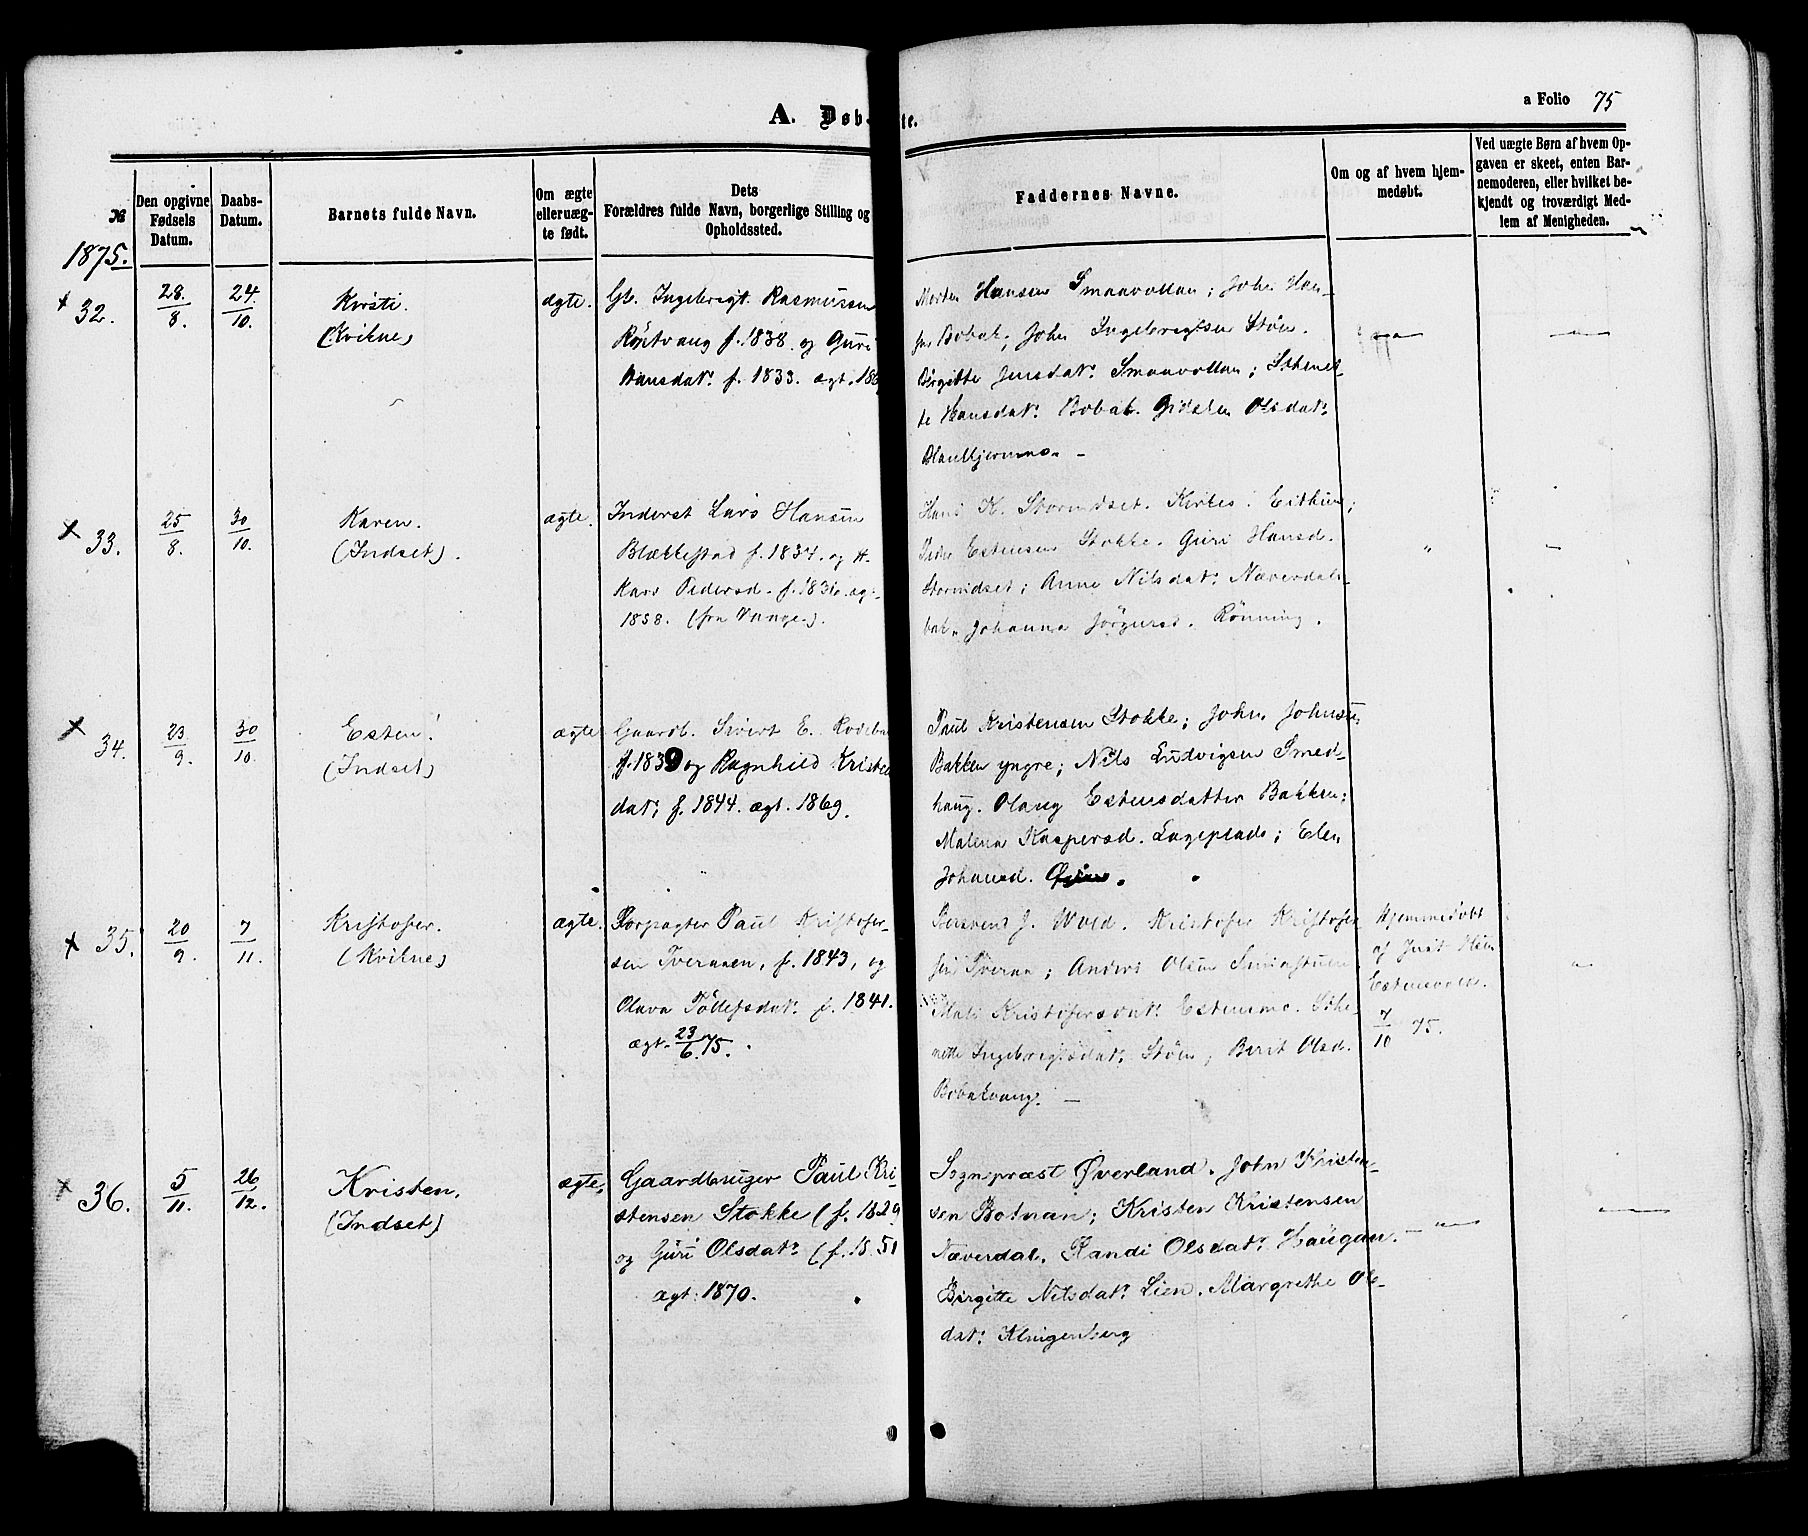 A. Døb te.
a Folio 75
№
Den opgivne Fødsels Datum.
Daabs-Datum.
Barnets fulde Navn.
Om ægte eller uæg-te født.
Dets Forældres fulde Navn, borgerlige Stilling og Opholdssted.
Faddernes Navne.
Om og af hvem hjem-medøbt.
Ved uægte Børn af hvem Op-gaven er skeet, enten Bar-nemoderen, eller hvilket be-kjendt og troværdigt Med-lem af Menigheden.
1875.
32.
28/8.
24/10.
Kirsti.
(Kvikne)
ægte.
Gb. Ingebrigt Rasmussen
Röstvang f. 1838. og Guri
Hansdatr. f. 1833. ægt. 186
Morten Hansen Smaavollan; John Han-
sen Bobak; John Ingebrigtsen Stöen.
Birgitte Jensdatr. Smaavollan; Sthenet-
te Hansdatr. Bobak. Gidsken Olsdatr.
33.
25/8.
30/10.
Karen.
(Indset).
ægte.
Inderst Lars Hansen
Blækkestad f. 1834. og H.
Kari Pedersd. f. 1836. æg-
1858. (fra Vange).
Hans K. Storindset.
Peder Estensen Stokke. Guri Hansd.
Storindset; Anne Nilsdatr. Næverdals-
bak. Johanna Jörgensd. Rønning.
34.
23/9.
30/10
Esten!
(Indset)
ægte
Gaardb. Sivert E. Rodebak
f. 1839 og Ragnhild Kristen
dat; f. 1844. ægt. 1869.
Paul Kristensen Stokke; John Johnsen
Bakken yngre; Nils Ludvigsen Smed-
haug. Olaug Estensdatter Bakken;
Malena Kaspersd. Lageplads; Elen
Johansd.
35.
20/9.
7/11.
Kristofer.
(Kvikne)
ægte.
Forpagter Paul Kristofer-
sen Tveraaen, f. 1843, og
Olava Töllefsdatr. f. 1841.
ægt. 23/6 75.
Bersvend J. Wold. Kristofer Kristofer
sen Tveraa; Anders Olsen
Mali Kristofersdatr. Estensmo. Sthe-
nette Ingebrigtsdatr. Stöen; Berit Olsd.
Bobakvang. —
Hjemmedöbt
af
Estensvold.
7/10 75.
36.
5/11.
26/12.
Kristen.
(Indset)
ægte.
Gaardbruger Paul Kri-
stensen Stokke (f. 1829
og Guri Olsdatr. (f. 1851
ægt: 1870.
Sognepræst Øverland. John Kristen-
sen Botnan; Kristen Kristensen
Næverdal. Randi Olsdatr. Haugan. — " —
Birgitte Nilsdatr. Lien. Margrethe Ol-
datr. Klingenberg